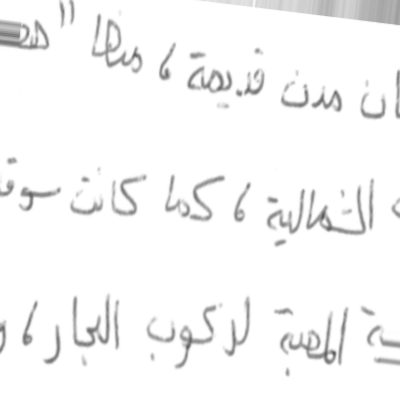 مدن قديمة ، منها "
الشمالية ، كما كانت سوق
المحبة لركوب البحار ،